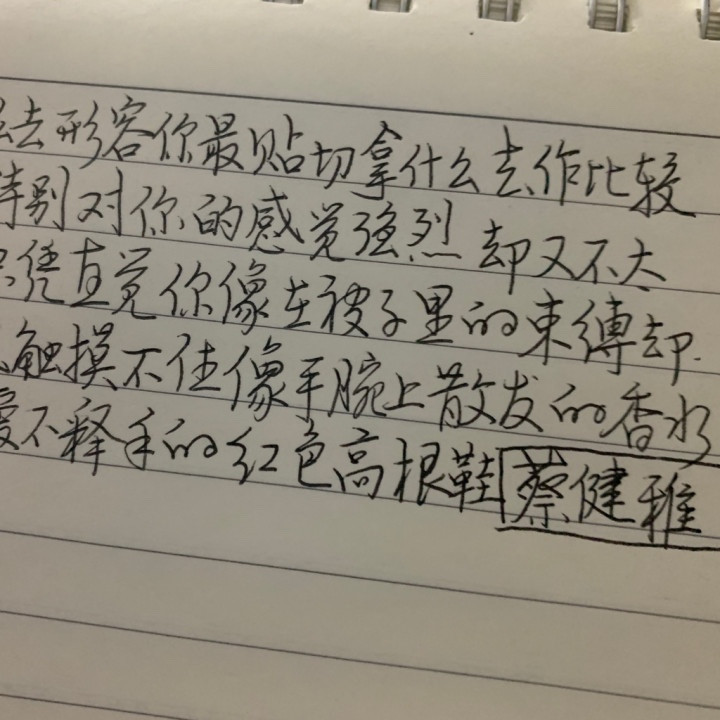 去形容你最贴切拿什么去作比较
特别对你的感觉强烈 却又不太
凭直觉你像在被子里的束缚却
触摸不住像手腕上散发的香水
爱不释手的红色高根鞋 蔡健雅